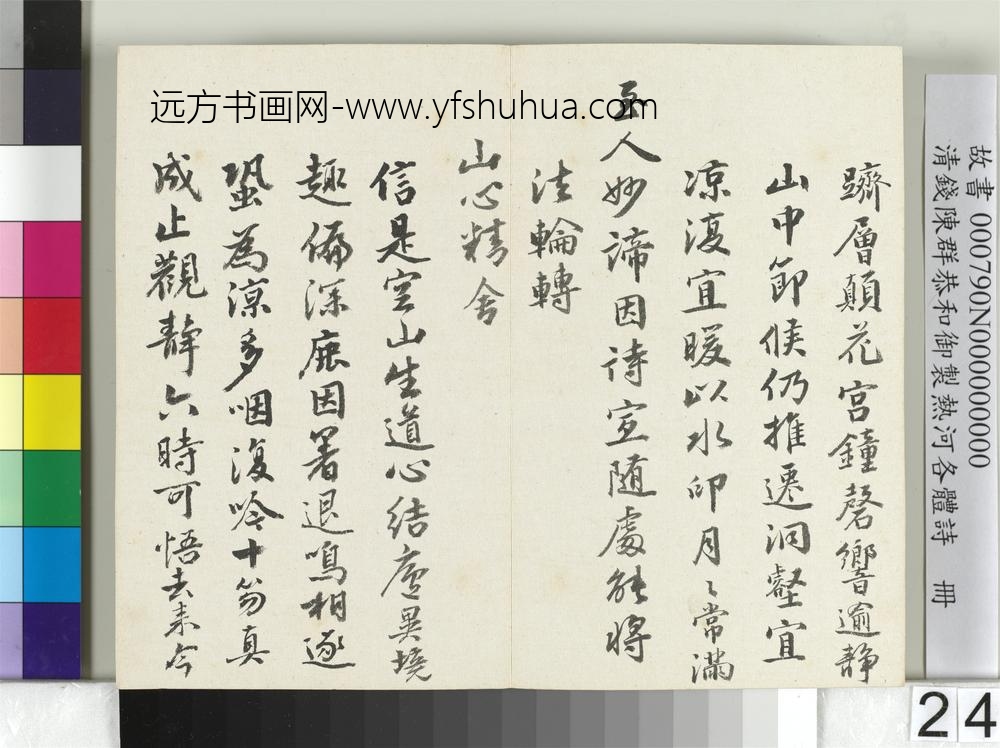 躋層顛花宮鐘磬響逾靜
山中節候仍推遷洞壑宜
涼復宜暖以水印月〻常滿
至人妙諦因詩宣隨處能將
法輪轉
山心精舍
信是空山生道心結廬異境
趣偏深鹿因暑退鳴相逐
蛩為涼多咽復吟十笏真
成止觀靜六時可悟去來今
远方书画网-www.yfshuhua.com
故書 000790N000000000
清錢陳群恭和御製熱河各體詩 冊
24